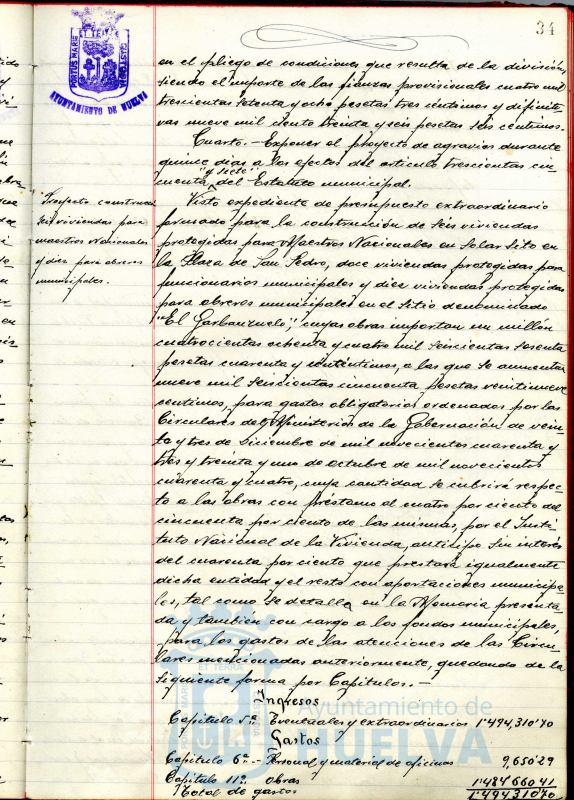 34
PORTUS MARIS ET TERRE CUSTODIA
AYUNTAMIENTO DE HUELVA
en el pliego de condiciones que resulta de la división,
siendo el importe de las fianzas provisionales cuatro mil
trescientas setenta y ocho pesetas tres céntimos y definiti-
vas nueve mil ciento treinta y seis pesetas seis centimos.
Cuarto.- Exponer el proyecto de agravios durante
quince dias a los efectos del articulo trescientas cin-
cuenta y siete del Estatuto municipal.
Proyecto construcc.
seis viviendas para
maestros Nacionales
y diez para obreros
municipales.
Visto expediente de presupuesto extraordinario
formado para la construcción de seis viviendas
protegidas para Maestros Nacionales en solar sito en
la Plaza de San Pedro, doce viviendas protegidas para
funcionarios municipales y diez viviendas protegidas
para obreros municipales en el sitio denominado
"El Garbanzuelo", cuyas obras importan un millón
cuatrocientas ochenta y cuatro mil seiscientas sesenta
pesetas cuarenta y un céntimos, a las que se aumentan
nueve mil seiscientas cincuenta pesetas veintinueve
centimos, para gastos obligatorios ordenados por las
Circulares del Ministerio de la Gobernación de vein-
ta y tres de Diciembre de mil novecientos cuarenta y
tres y treinta y uno de octubre de mil novecientos
cuarenta y cuatro, cuya cantidad se cubrirá respec-
to a las obras con préstamo al cuatro por ciento del
cincuenta por ciento de las mismas, por el Insti-
tuto Nacional de la Vivienda, anticipo sin interés
del cuarenta por ciento que prestará igualmente
dicha entidad y el resto con aportaciones municipa-
les, tal como se detalla en la Memoria presenta-
da y también con cargo a los fondos municipales,
para los gastos de las atenciones de las Circu-
lares mencionadas anteriormente, quedando de la
siguiente forma por Capitulos.-
Ingresos
Capítulo 5º Eventuales y extraordinarios 1'494,310'70
Gastos
Capítulo 6º.- Personal y material de oficinas 9,650'29
Capítulo 11º. Obras 1'484660 41
Total de gastos 1'494310'70
Ayuntamiento de
HUELVA